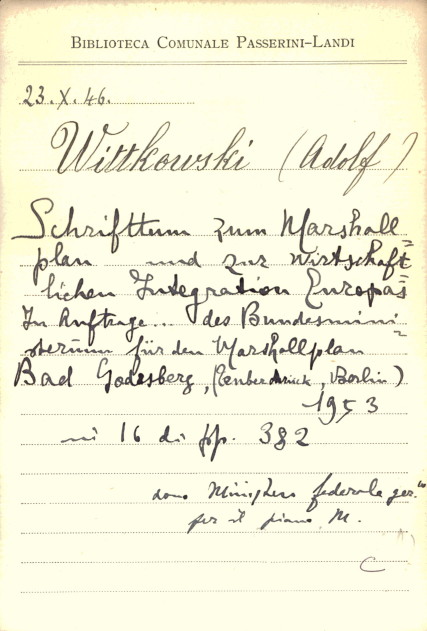 BIBLIOTECA COMUNALE PASSERINI-LANDI
23.X.46.
Wittkowski (Adolf)
Schrifttum zum Marshall
plan und zur wirtschaft=
lichen Integration Europas
Im Auftrage... des Bundesmini=
sterium für den Marshallplan
Bad Godesberg, ( , Berlin)
1953
in 16 di pp. 382
dono Ministero federale ger.
per il piano M.
C